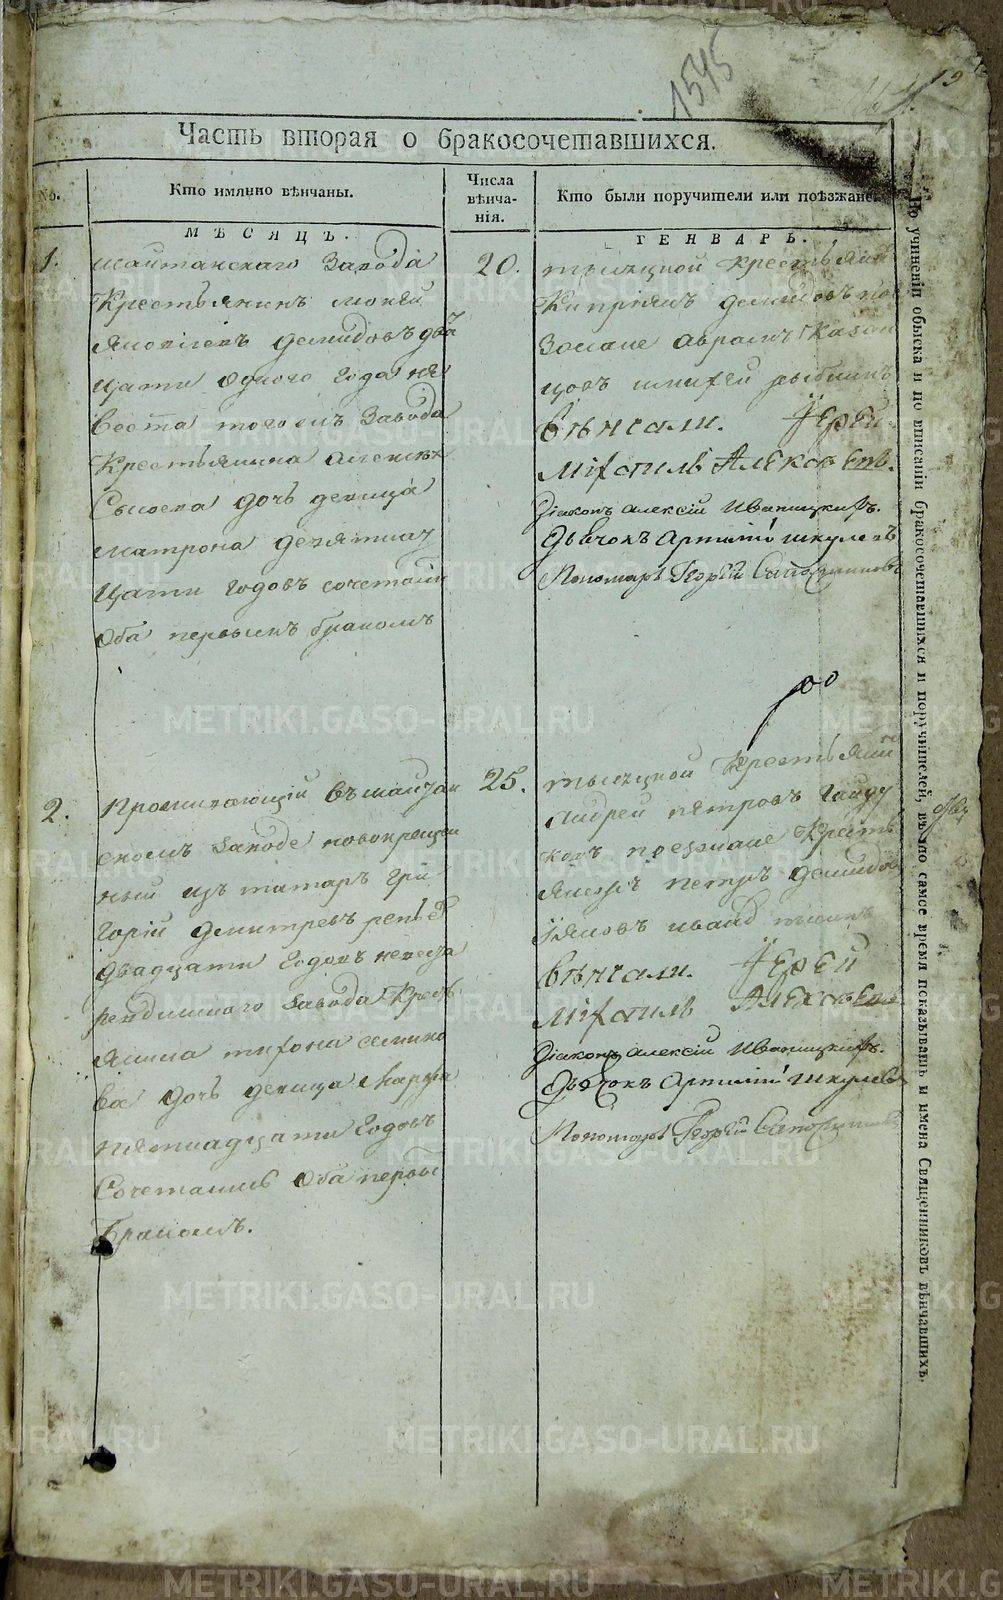 1545
19
Часть вторая о бракосочетавшихся.
No.
Кто имянно вѣнчаны.
Числа
вѣнча-
нія.
Кто были поручители или поѣзжане.
МѢСЯЦЪ.
ГЕНВАРЬ.
1.
Шайтанскаго Завода
Крестьянинъ мокей
Яковлевъ демидовъ два
цати одного года не
веста того жъ завода
Крестьянина
Сысоева дочь девица
матрона девятнат
цати годовъ сочетаны
Оба первымъ бракомъ
20.
тысяцкой крестьянин
Киприянъ демидовъ по
Зжане аврамъ Казан
цовъ михей рыбник
Вѣнчали. Іерей
Міхаилъ Алексѣевъ.
Діаконъ алексій Иваницкихъ.
Дьячокъ Артимій шкулевъ
Пономарь Георгій Сапожниковъ
2.
Проживающій въ шайтан
скомъ Заводе новокрещен
ный изъ татаръ Гри
горій Демитревъ
двадцати годовъ невеста
ревдинского Завода Крест
янина тифона семино
ва дочь девица марфа
пятнадцати годовъ
Сочетаны Оба первы
Бракомъ.
25.
тысяцкой Крестьянин
Андреи петровъ Гайду
ковъ поезжане Крестья
янинъ петръ демидов
иванъ
Вѣнчали. Іерей
Міхаилъ Алексѣевъ
Діаконъ алексій Иваницкихъ.
Дьячокъ Артимій шкулевъ
Пономарь Георгій Сапожниковъ
По учиненіи обыска и по вписаніи бракосочетавшихся и поручителей, въ то самое время показывать и имена Священниковъ вѣнчавшихъ.
METRIKI.GASO-URAL.RU